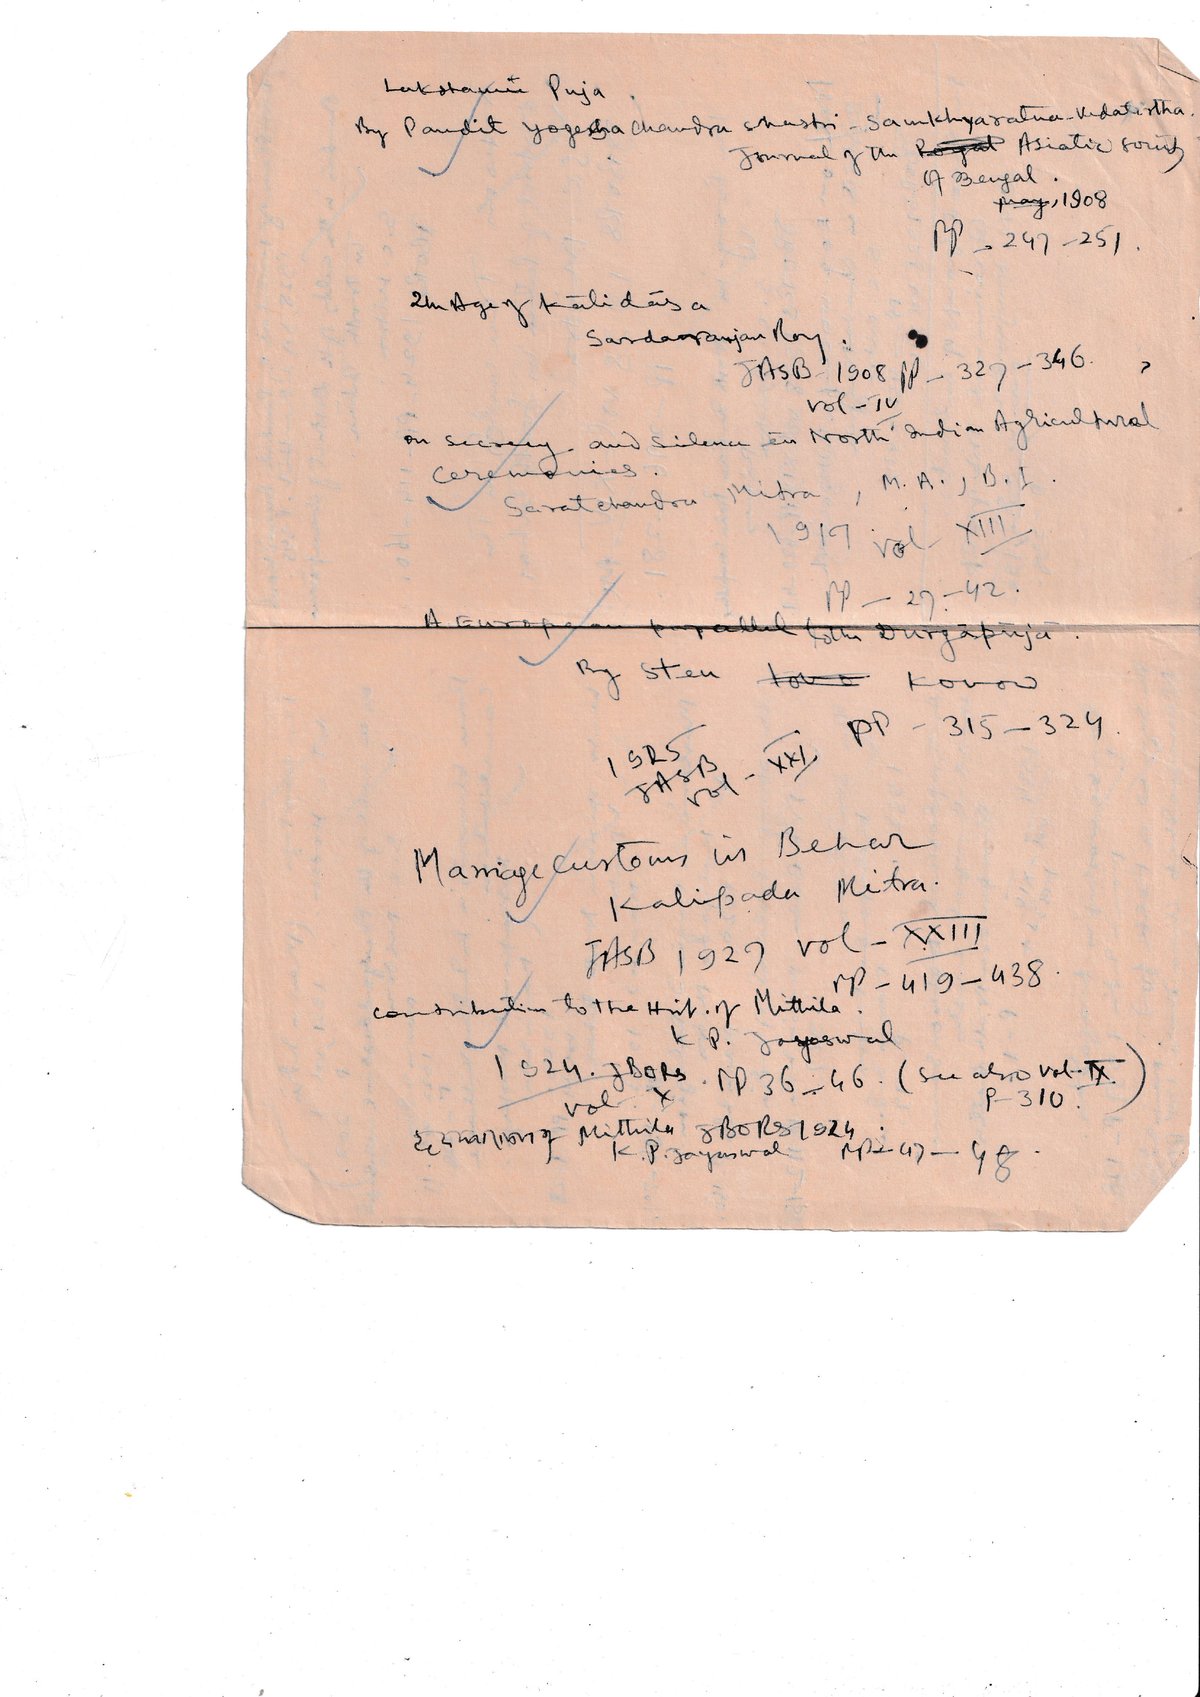 Lakshami Puja.
By Pandit Yogesha Chandra Shastri - Samkhyaratna - Vedatirtha.
Journal of the Royal Asiatic Society
of Bengal.
May, 1908
PP - 247 - 251.
The Age of Kālidāsa
Sardaranjan Roy.
JASB - 1908 PP - 327 - 346.
vol - IV
on secrecy and silence in North Indian Agricultural
Ceremonies.
Saratchandra Mitra, M.A., B.L.
1917 vol XIII
PP - 27 - 42.
A European parallel to the Durgāpūjā.
By Sten Konow
PP - 315 - 324
1925
JASB
vol - XXI
Marriage Customs in Behar
Kalipada Mitra.
JASB 1927 vol - XXIII
PP - 419 - 438.
Contribution to the Hist. of Mithila.
K P. Jayaswal
1924. JBORS. PP 36 - 46. (See also vol - IX
vol X P - 310.)
of Mithila JBORS 1924.
K.P. Jayaswal PP - 47 - 48.